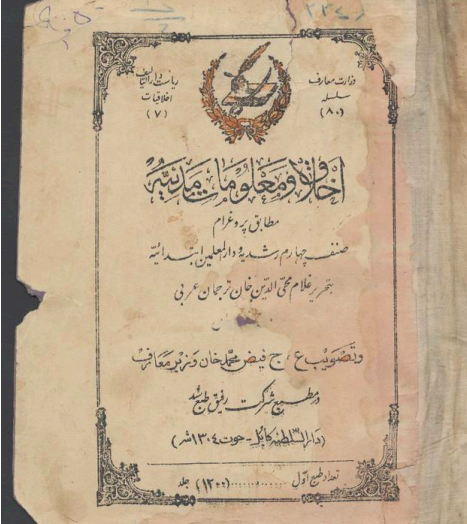 ۱۳۴۱
وزارت معارف
سلسله
(۸۰)
ریاست دارالتالیف
اخلاقیات
(۷)
اخلاق و معلومات مدنیه
مطابق پروغرام
صنف چهارم رشدیه و دارالمعلمین ابتدائیه
بتحریر غلام محی الدین خان ترجمان عربی
و تصویب ع، ج فیض محمد خان وزیر معارف
در مطبع شرکت رفیق طبع شد
(دارالسلطنه کابل - حوت ۱۳۰۴ش)
تعداد طبع اول .............. (۱۲۰۰) جلد